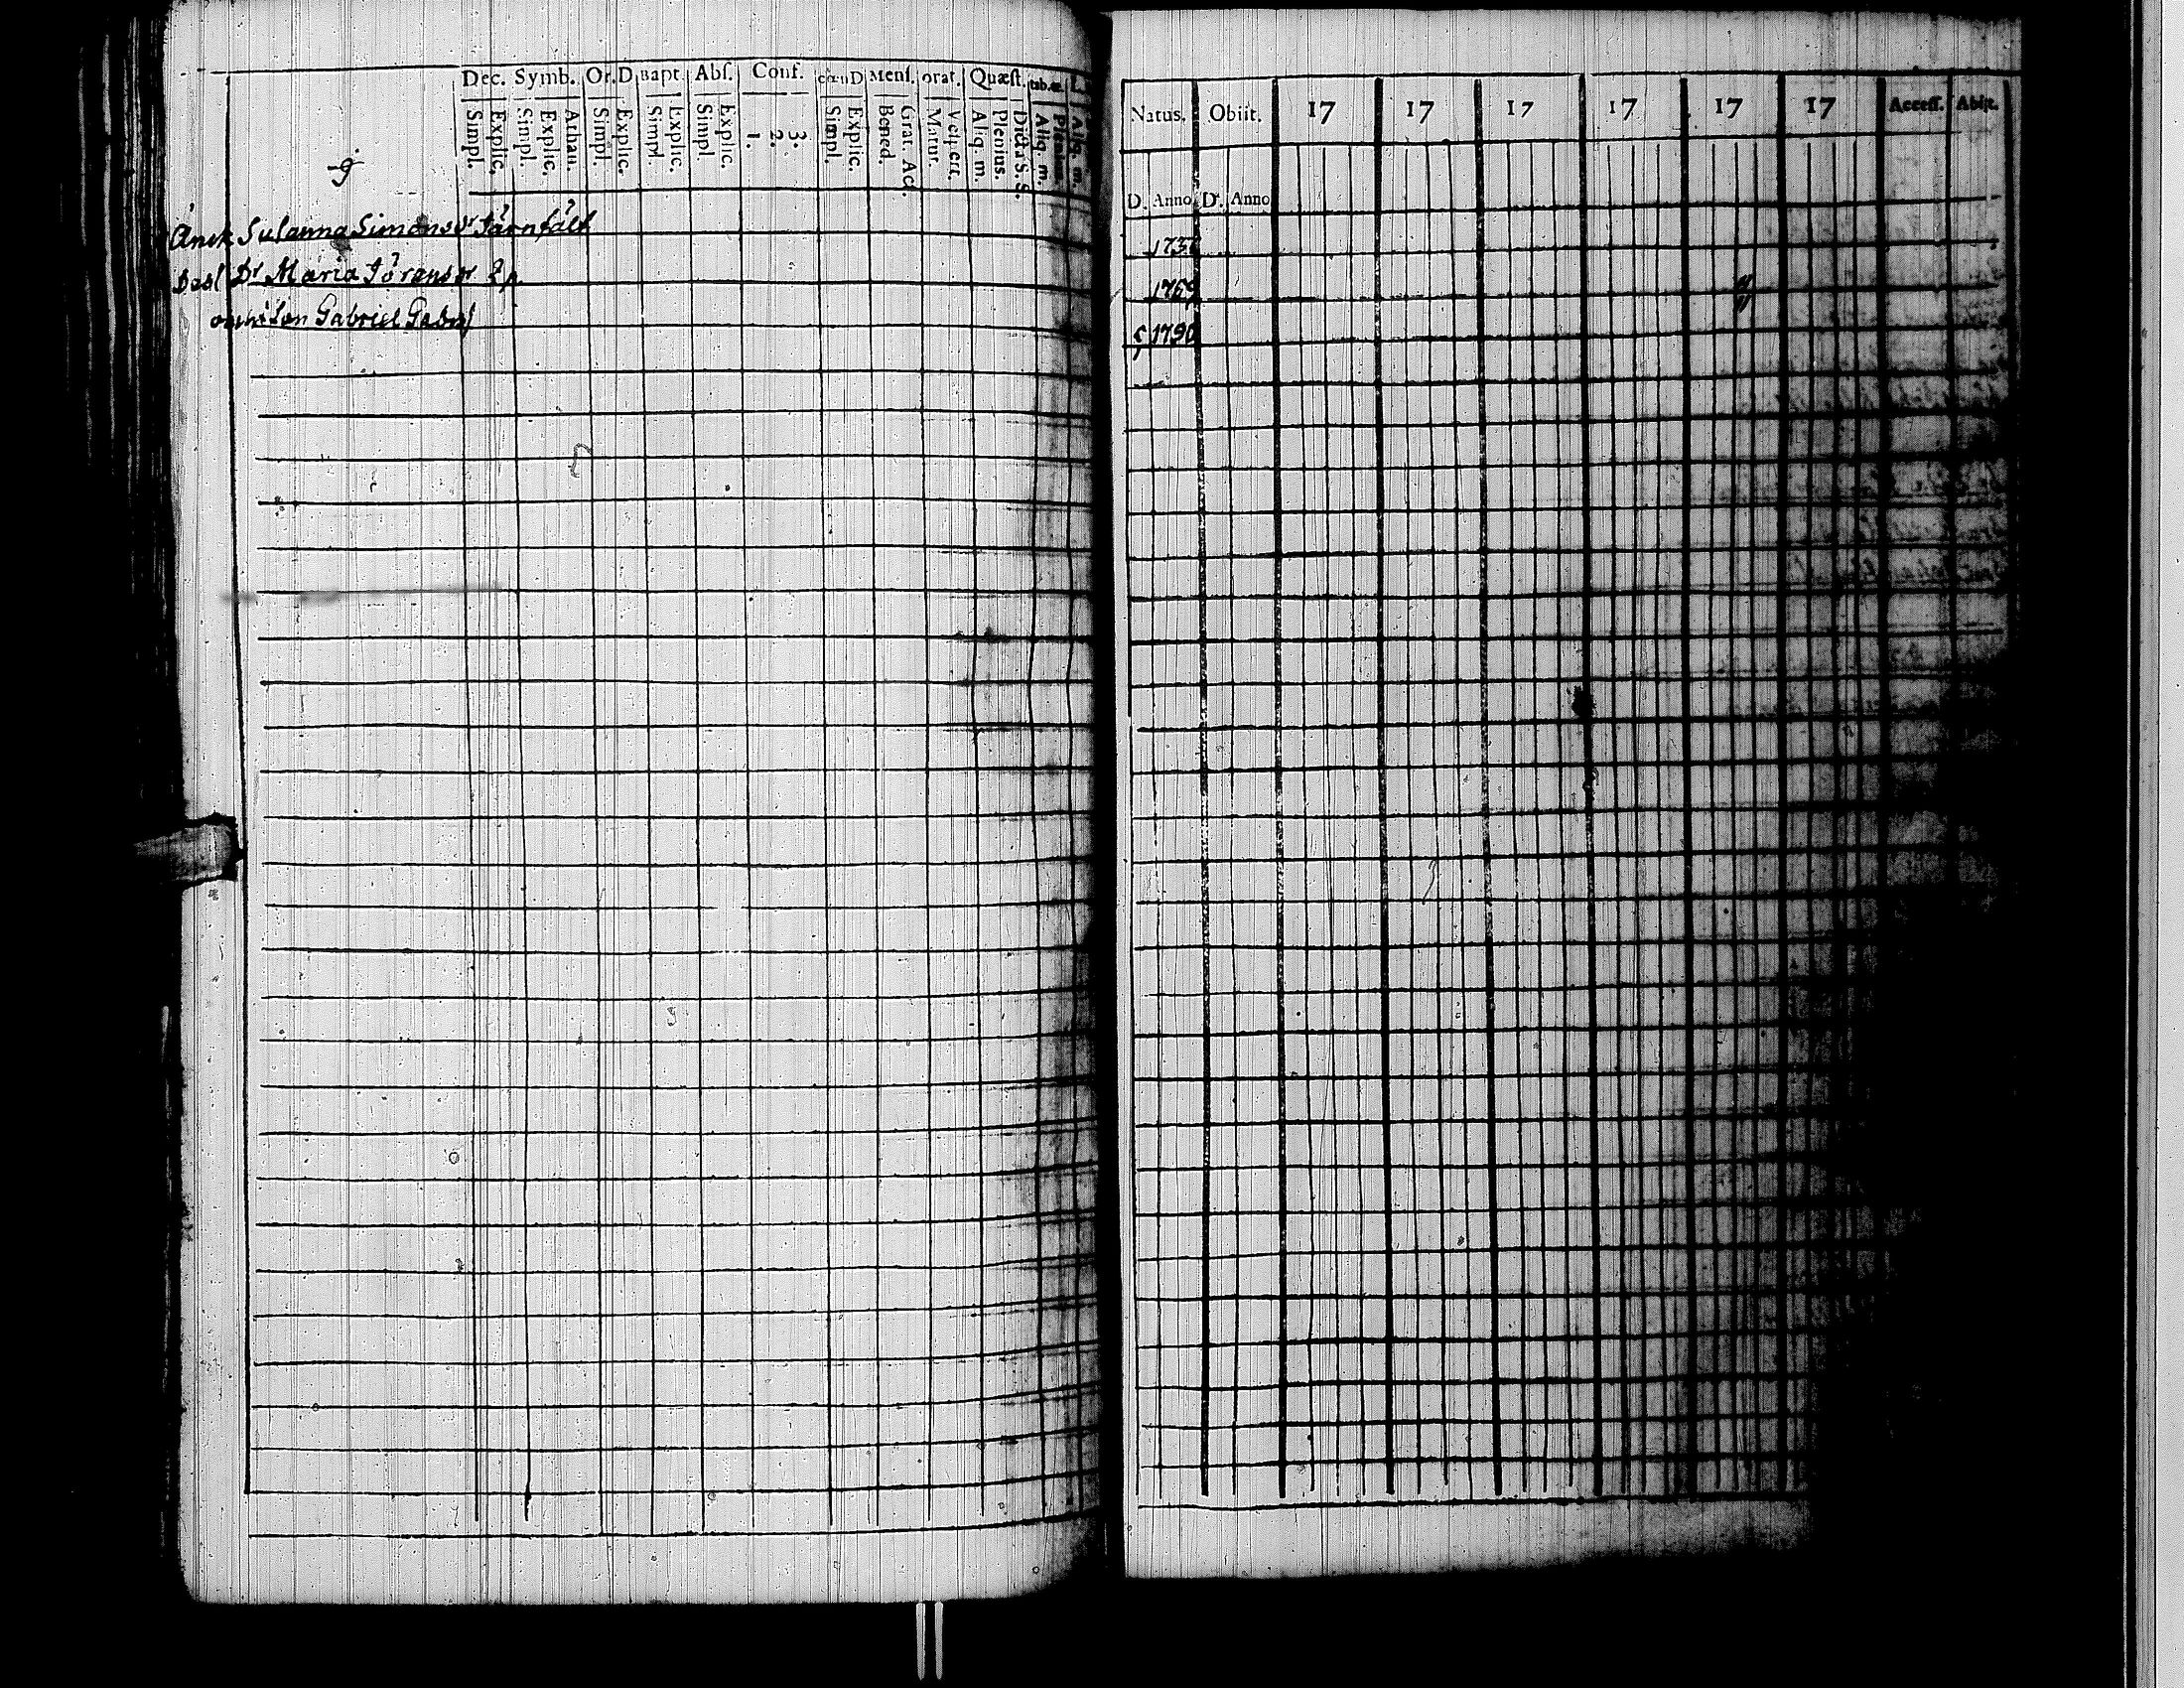 Dec. Symb. Or. D Bapt. Abſ. Conf. cœnD Menſ. orat. Quæſt. tab.œ. L.
Simpl. Explic. Simpl. Explic. Athan. Simpl. Explic. Simpl. Explic. Simpl. Explic. 1. 2. 3. Simpl. Explic. Bened. Grat. Act. Matut. Veſpert. Aliq. m. Plenius. Dicta S. S. Aliq. m. Plenius. Aliq. m.
Natus. Obiit. 17 17 17 17 17 17 Acceſſ. Abiit.
D. Anno D. Anno
Änck Susanna Simonsdr 173
Dr Maria 1769
Gabriel 1790